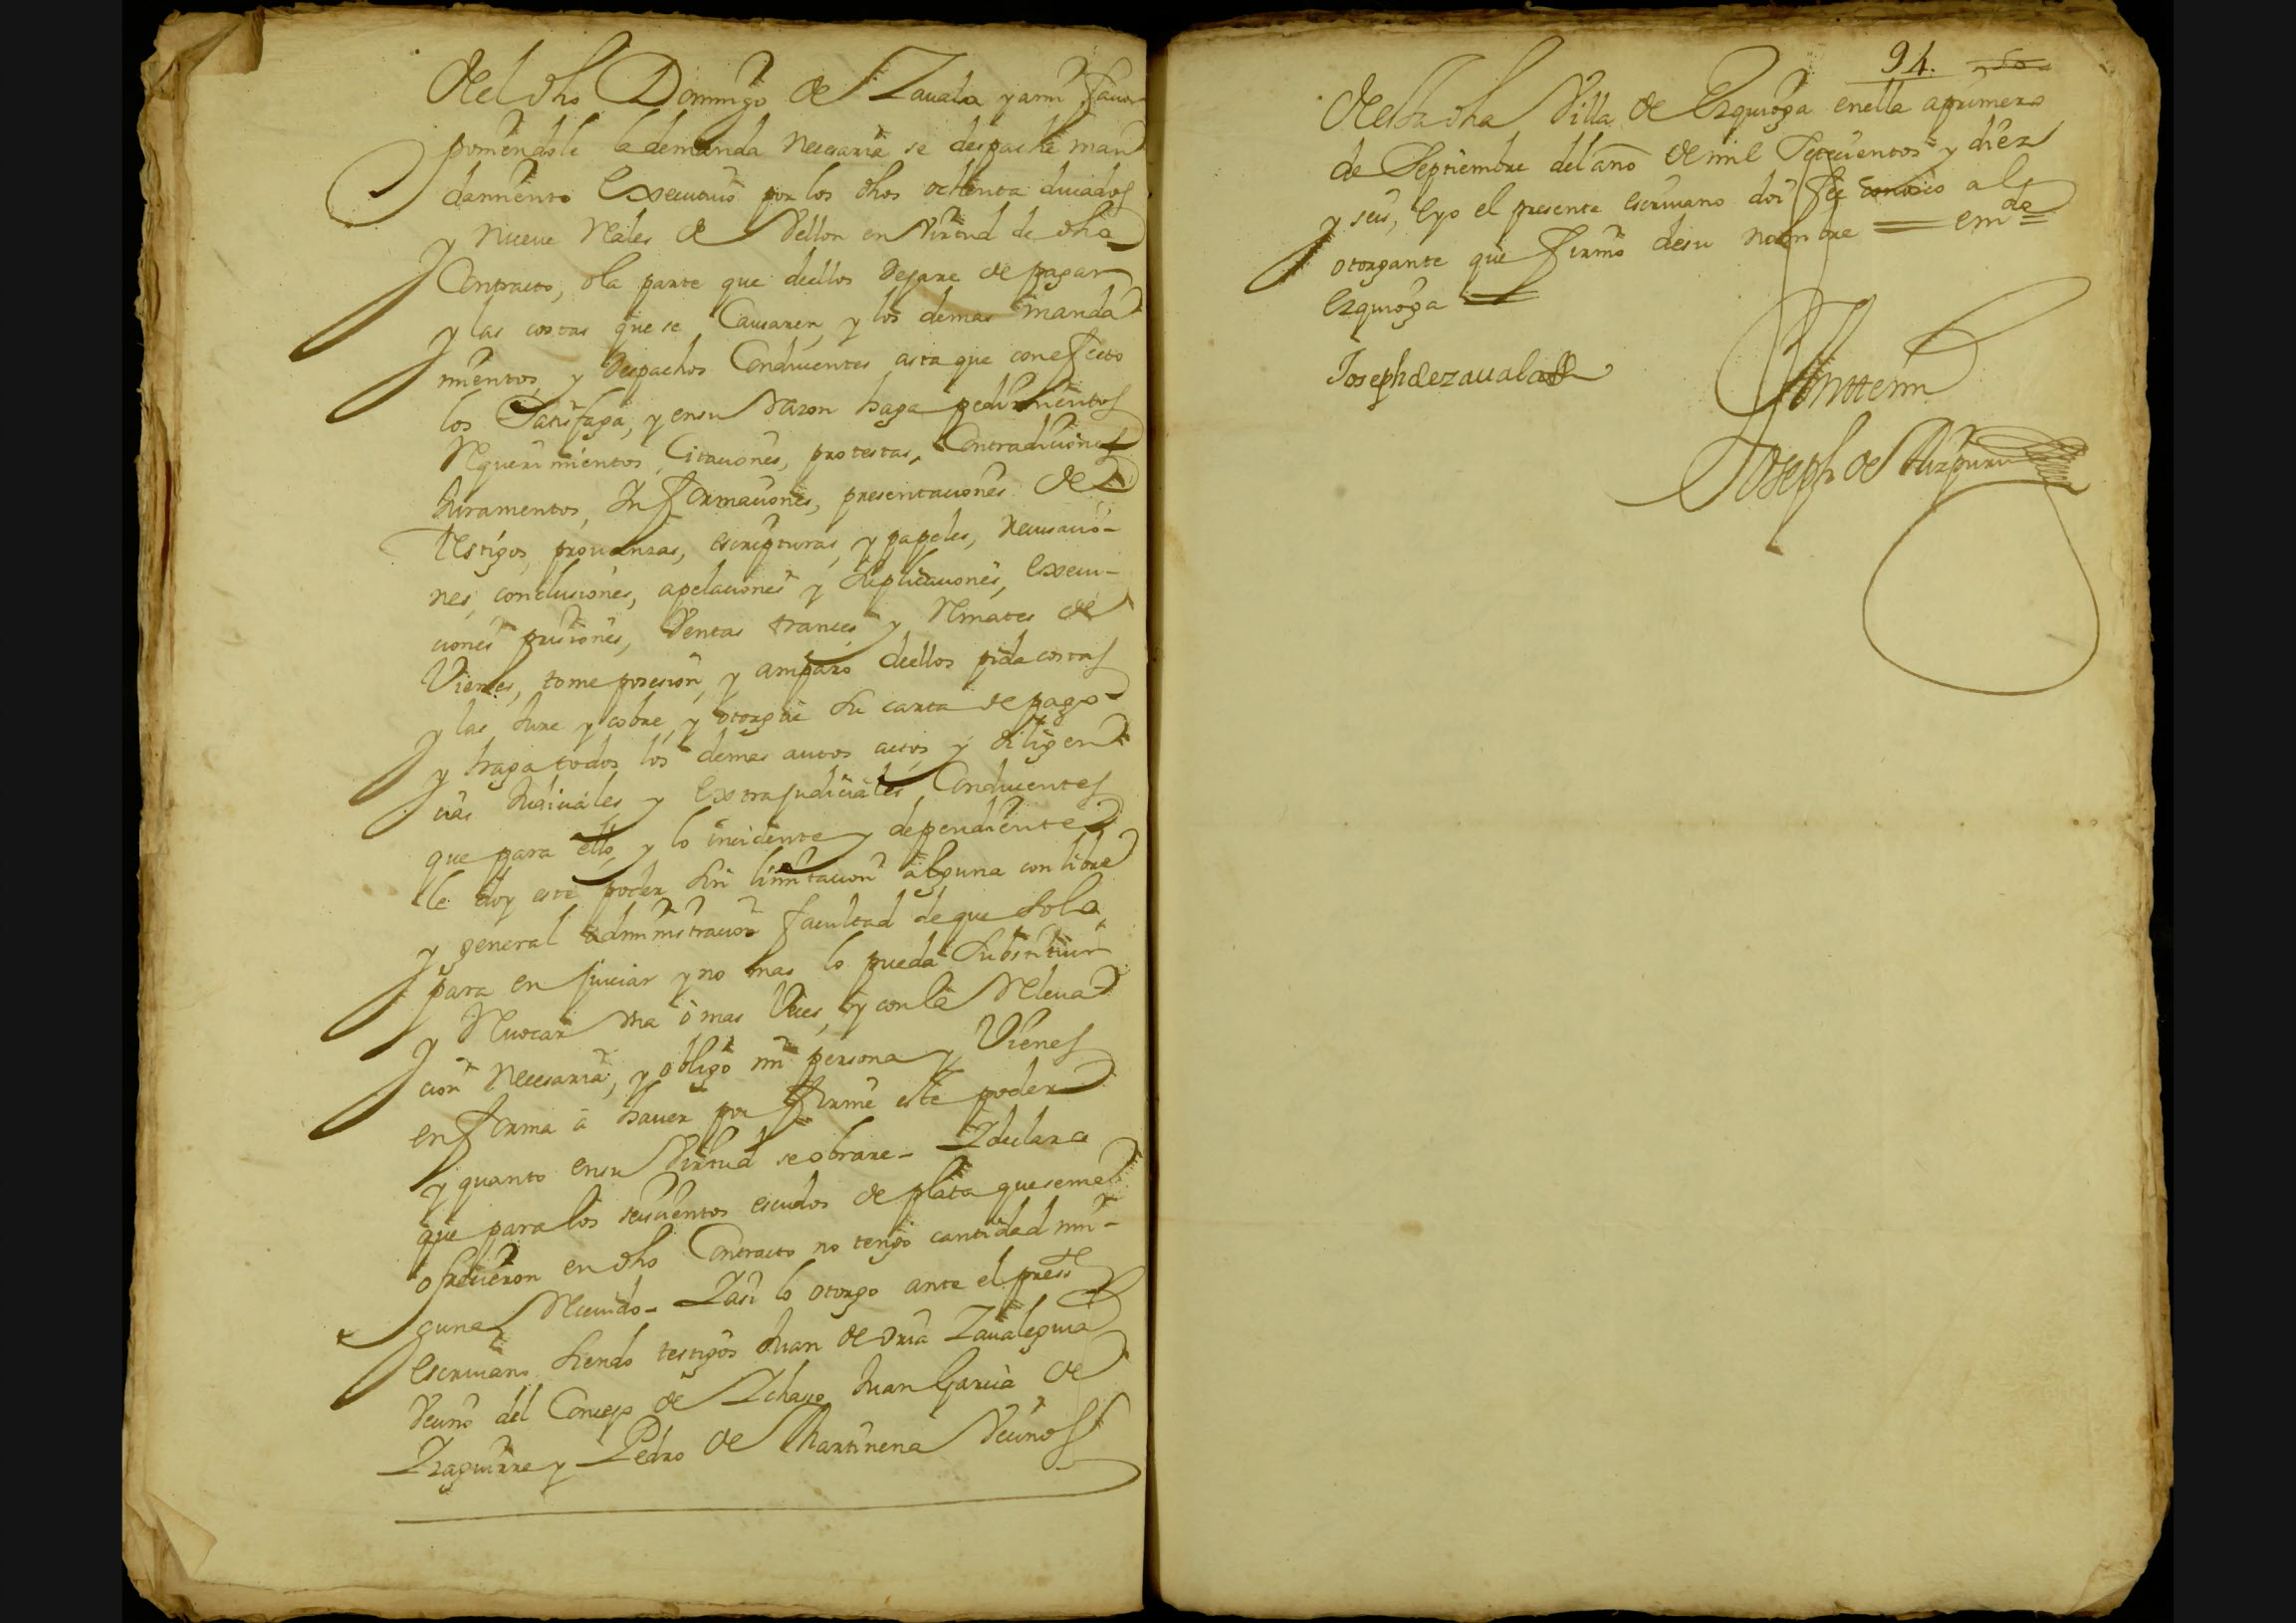 del dho Domingo de Zauala y a mi fauor
poniendole la demanda necesaria se despache man
damiento executiuo por los dhos ochenta ducados
y nueue Reales de Vellon en Virtud de dho
Contracto, o la parte que dellos dejare de pagar
y las costas que se Causaren, y los demas manda
mientos, y despachos Conducentes asta que con efecto
los Satisfaga, y en su Razon haga pedimientos
Requerimientos, Citaciones, protestas, Contradiciones
Juramentos, Informaciones, presentaciones de
testigos, prouanzas, escripturas, y papeles, recusacio-
nes, conclusiones, apelaciones y suplicaciones, execu-
ciones prisiones, Ventas trances y Remates de
Vienes, tome posesion, y amparo dellos pida costas
y las Jure y cobre, y otorgue su carta de pago
y haga todos los demas autos actos y diligen
cias Judiciales y Extrajudiciales Conducentes
que para ello, y lo incidente y dependiente
le doy este poder sin limitacion alguna con libre
y general administracion facultad de que solo
para en juiciar y no mas lo pueda substituir
y Reuocar una ò mas Veces, y con la Releua
cion necesaria, y obligo mi persona y Vienes
en forma à hauer por firme este poder
y quanto en su Virtud se obrare - I declaro
que para los seiscientos escudos de plata que se me
ofrecieron en dho Contracto no tengo cantidad nin-
guna Recuido - I asi lo otorgo ante el presste
escriuano siendo testigos Juan de oria Zaualegui
Vecino del Concejo de Ichaso Juan Garcia de
Izaguirre y Pedro de Martinena Vecinos
94.
desta dha Villa de Ezquioga en ella a primero
de Septiembre del año de mil Setecientos y diez
y seis, e yo el presente escriuano doi fee conosco al
otorgante que firmo de su nombre = emdo =
Ezquioga =
Joseph de zauala
Ante mi
Joseph de Aizpuru